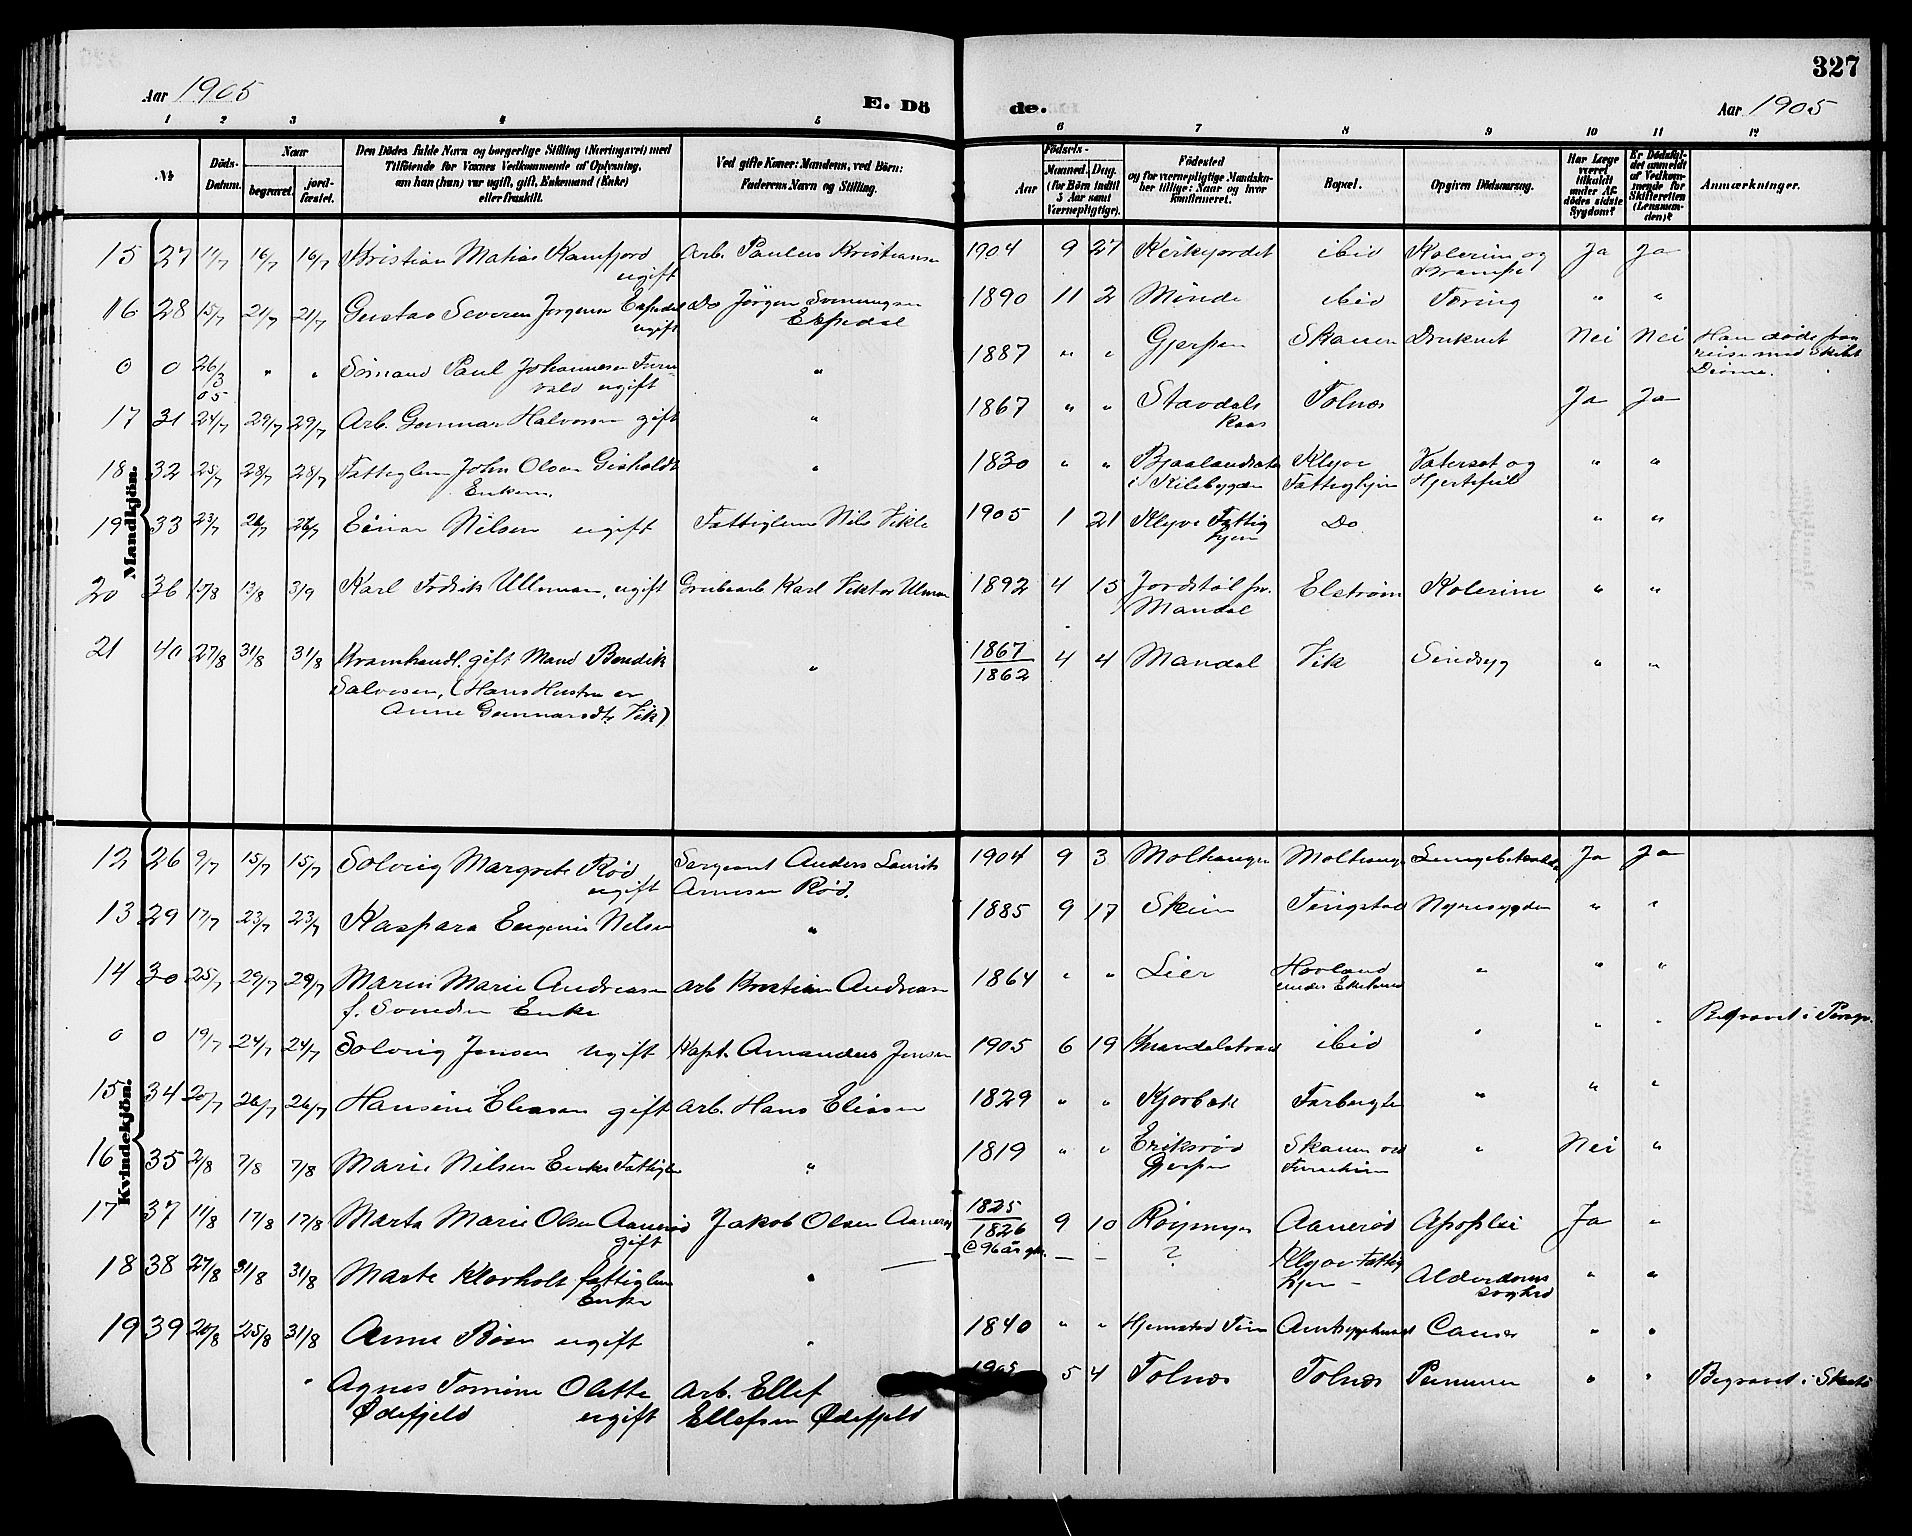 327
Aar 1905
E. Dö
de.
Aar 1905
1 2 3 4 5 6 7 8 9 10 11 12
№
Döds-
Datum.
Naar
begravet.
jord-
fæstet.
Den Dödes fulde Navn og borgerlige Stilling (Næringsvei) med
Tilföiende for Voxnes Vedkommende af Oplysning,
om han (hun) var ugift, gift, Enkemand (Enke)
eller fraskilt.
Ved gifte Koner: Mandens, ved Börn:
Faderens Navn og Stilling.
Födsels-
Aar
Maaned. Dag.
(for Börn indtil
5 Aar samt
Værnepligtige).
Födested
og for værnepligtige Mandska-
ber tillige: Naar og hvor
konfirmeret.
Bopæl.
Opgiven Dödsaarsag.
Har Læge
været
tilkaldt
under Af-
dödes sidste
Sygdom?
Er Dödsfal-
det anmeldt
af Vedkom-
mende for
Skifteretten
(Lensman-
den)?
Anmærkninger.
Mandkjön.
15 27 11/7 16/7 16/7 Kristian Matias Kamfjord Arb. Paulus Kristiansen 1904 9 27 Kirkefjordet ibid Kolerine og Ja Ja
ugift Krampe
16 28 15/7 21/7 21/7 Gustav Severin Jørgensen Do Jørgen 1890 11 2 Minde ibid Tæring " "
ugift
0 0 26/3 05 " " Sømand Paul Johannesen " 1887 " " Gjerpen Skauen Druknet Nei Nei Han døde paa
ugift reise med Skibet
17 31 24/7 29/7 29/7 Arb. Gunnar Halvorsen gift " 1867 " " Stavdals Tolnæs Ja Ja
18 32 25/7 28/7 28/7 Fattiglem John Olsen Gisholdt " 1830 " " Klyve Vatersot og " "
Enkem. i Kilebygden Fattighjem Hjertefeil
19 33 23/7 26/7 26/7 Einar Nilsen ugift Fattiglem Nils Vikle 1905 1 21 Klyve Fattig Do " "
hjem
20 36 13/8 3/9 Karl Fredrik Ullman, ugift Karl Viktor Ulman 1892 4 15 Elstrøm Kolerine " "
Mandal
21 40 27/8 31/8 31/8 Kramhandl. gift Mand Bendik " 1867 4 4 Mandal Vik Sindsyg " "
1862
Salvesen, (Hans Hustru er
Anne Gunnarsdtr Vik)
Kvindekjön.
12 26 9/7 15/7 15/7 Solveig Margrete Rød Sergeant Anders Laurits 1904 9 3 Molhaugen Molhaugen Ja Ja
ugift Arnesen Rød.
13 29 17/7 23/7 23/7 Kaspara Nilsen " 1885 9 17 Skien Tingstad Nyresygdom " "
14 30 25/7 29/7 29/7 Maren Marie Andreasen Arb Kristian Andreasen 1864 " " Lier Hovland " " "
f. Svendsen Enke
0 0 19/7 24/7 24/7 Solveig Jensen ugift Kapt. Amandus Jensen 1905 6 19 ibid " " " Begravet i
15 34 20/7 26/7 26/7 Hansine Eliasen gift Arb. Hans Eliasen 1829 " " Kjørbæk " " "
16 35 2/8 7/8 7/8 Marie Nilsen Enke Fattiglem " 1819 " " Eriksrød Skauen ved " Nei "
Gjerpen
17 37 11/8 17/8 17/8 Marta Marie Olsen Aanerød Jakob Olsen Aanerød 1825 9 10 Aanerød Apoplexi Ja "
gift 1826
18 38 27/8 31/8 31/8 Marte Klovholt fattiglem " c 96 år gl. — — ? Klyve fattig Alderdoms " "
Enke hjem – svaghed
19 39 20/8 25/8 31/8 Anne Bøen ugift " 1840 " " Amtssygehuset Cancer " "
" Agnes Tomine Olette Arb. Ellef 1905 5 4 Tolnæs Tolnæs " " Begravet i
Ødefjeld ugift Ellefsen Ødefjeld